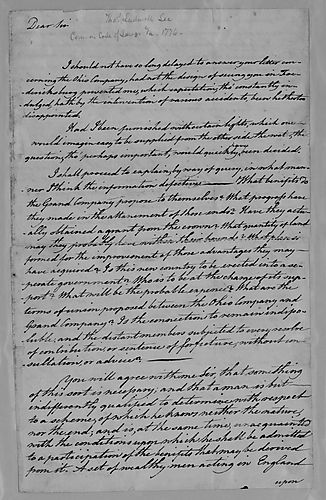 Dear Sir.
Thos. Ludwell Lee
I should not have so long delayed to answer your letter con-
cerning the Ohio Company, had not the design of seeing you in Fre-
dericksburg presented one, which expectation, tho' constantly in-
dulged, hath by the intervention of various accidents, been hitherto
disappointed.
Had I been furnished with certain lights, which one
would imagine easy to be supplied from the other side the water, the
question, tho' perhaps important, would quickly have been decided.
I shall proceed to explain, by way of query, in what man-
ner I think the information defective. What benefits do
the Grand Company propose to themselves? What progress have
they made in the attainment of those ends? Have they actu-
ally obtained a grant from the crown? What quantity of land
may they probably have within these bounds? What plan is
formed for the improvement of those advantages they may
have acquired? Is this new country to be erected into a se-
perate government? Who is to be at the charge of its sup-
port? What will be the probable expence? What are the
terms of union proposed between the Ohio Company and
Grand Company? Is the connection to remain indisso-
luble, and the distant members subjected to every resolve
of contribution, or sentence of forfeiture, without con-
sultation, or advice?
You will agree with me Sir that something
of this sort is necessary, and that a man is but
indifferently qualified to determine with respect
to a scheme, of which he knows neither the nature,
nor the end; and is, at the same time, unacquainted
with the conditions upon which he shall be admitted
to a participation of the benefits that may be derived
from it. A set of wealthy men acting in England
upon